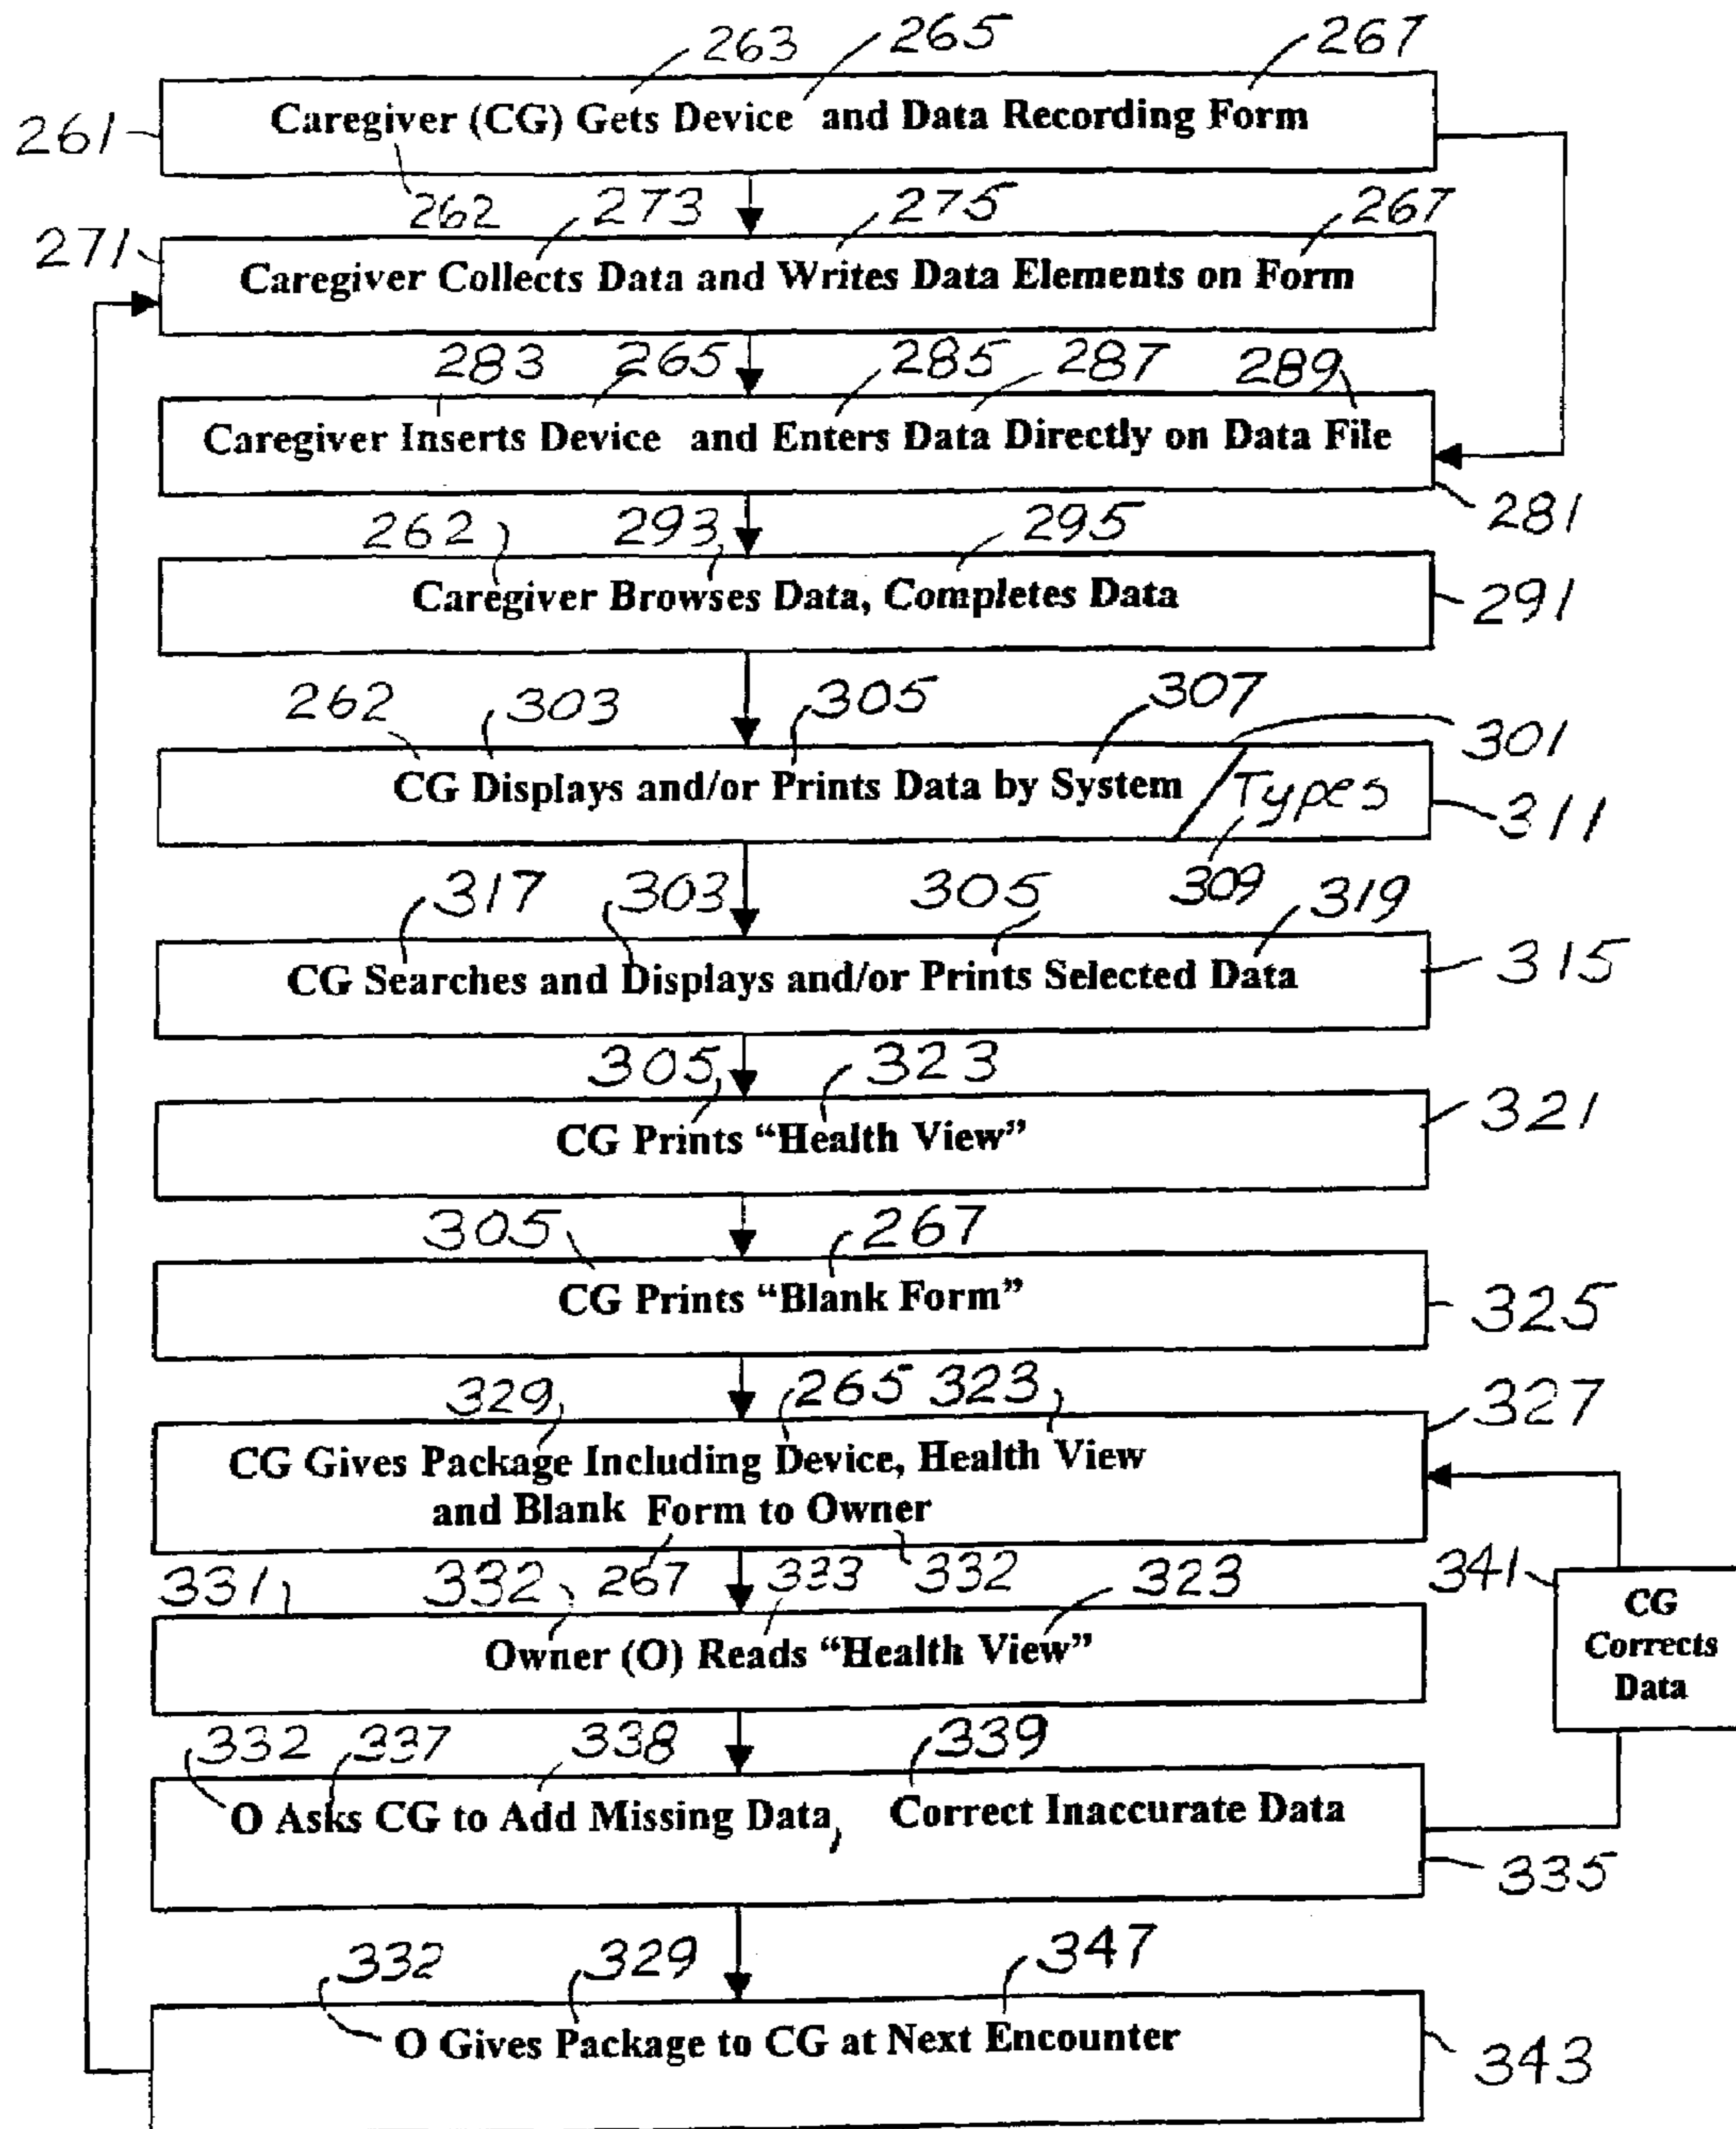 263 265 267
261 Caregiver (CG) Gets Device and Data Recording Form
262 273 275 267
271
Caregiver Collects Data and Writes Data Elements on Form
283 265 285 287 289
Caregiver Inserts Device and Enters Data Directly on Data File
281
262 293 295
Caregiver Browses Data, Completes Data 291
262 303 305 307
301
CG Displays and/or Prints Data by System / Types 311
317 303 305 309 319
CG Searches and Displays and/or Prints Selected Data 315
305 323
CG Prints “Health View” 321
305 267
CG Prints “Blank Form” 325
329 265 323 327
CG Gives Package Including Device, Health View
and Blank Form to Owner
331 332 267 333 332 323
341
Owner (O) Reads “Health View”
CG
Corrects
Data
332 337 338 339
O Asks CG to Add Missing Data, Correct Inaccurate Data
335
332 329 347
O Gives Package to CG at Next Encounter 343